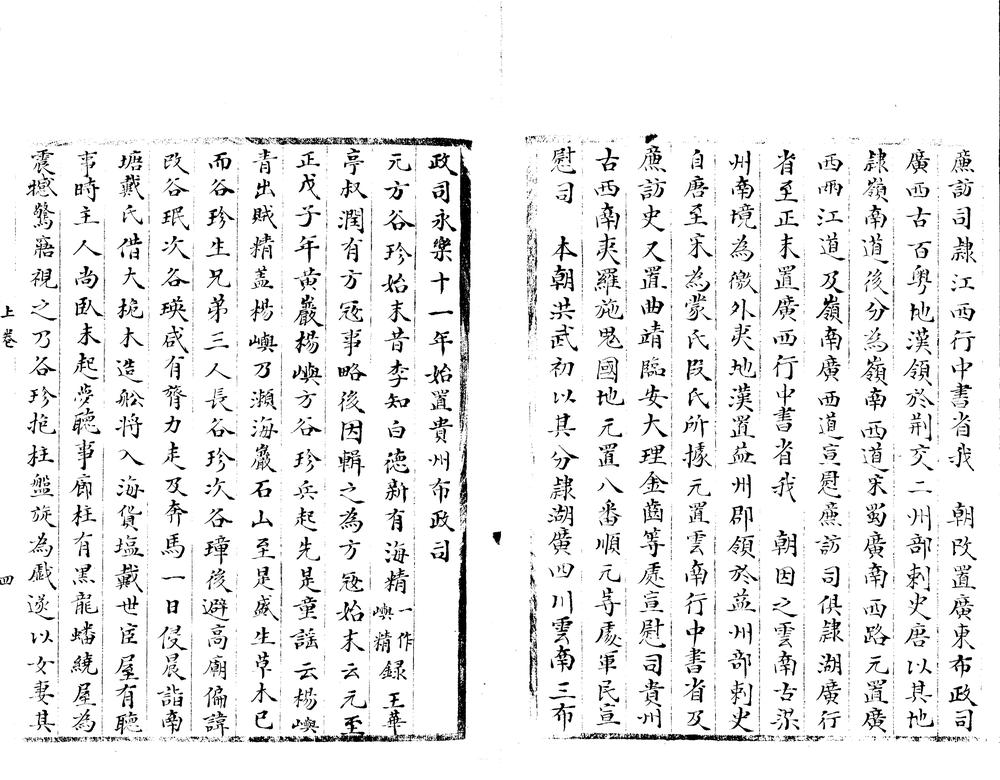 廉訪司隷江西行中書省我　朝改置廣東布政司
廣西古百粤地漢領於荆交二州部刺史唐以其地
隷嶺南道後分為嶺南西道宋蜀廣南西路元置廣
西兩江道及嶺南廣西道宣慰廉訪司俱隷湖廣行
省至正末置廣西行中書省我　朝因之雲南古梁
州南境為徼外夷地漢置益州郡領於益州部刺史
自唐至宋為蒙氏段氏所據元置雲南行中書省及
廉訪史又置曲靖臨安大理金齒等處宣慰司貴州
古西南夷羅施鬼國地元置八番順元等處軍民宣
慰司　本朝洪武初以其分隷湖廣四川雲南三布
政司永樂十一年始置貴州布政司
元方谷珍始末昔李知白德新有海精一作嶼精録王華
亭叔潤有方冦事略後因輯之為方冦始末云元至
正戊子年黄巖楊嶼方谷珍兵起先是童謡云楊嶼
青出賊精盖楊嶼乃瀕海巖石山至是盛生草木已
而谷珍生兄弟三人長谷珍次谷璋後避高廟偏諱
改谷珉次谷瑛咸有膂力走及奔馬一日侵晨詣南
塘戴氏借大桅木造舩將入海貨塩戴世宦屋有聽
事時主人尚卧未起夢聽事廊柱有黒龍蟠繞屋為
震撼驚寤視之乃谷珍抱柱盤旋為戲遂以女妻其
上卷
四